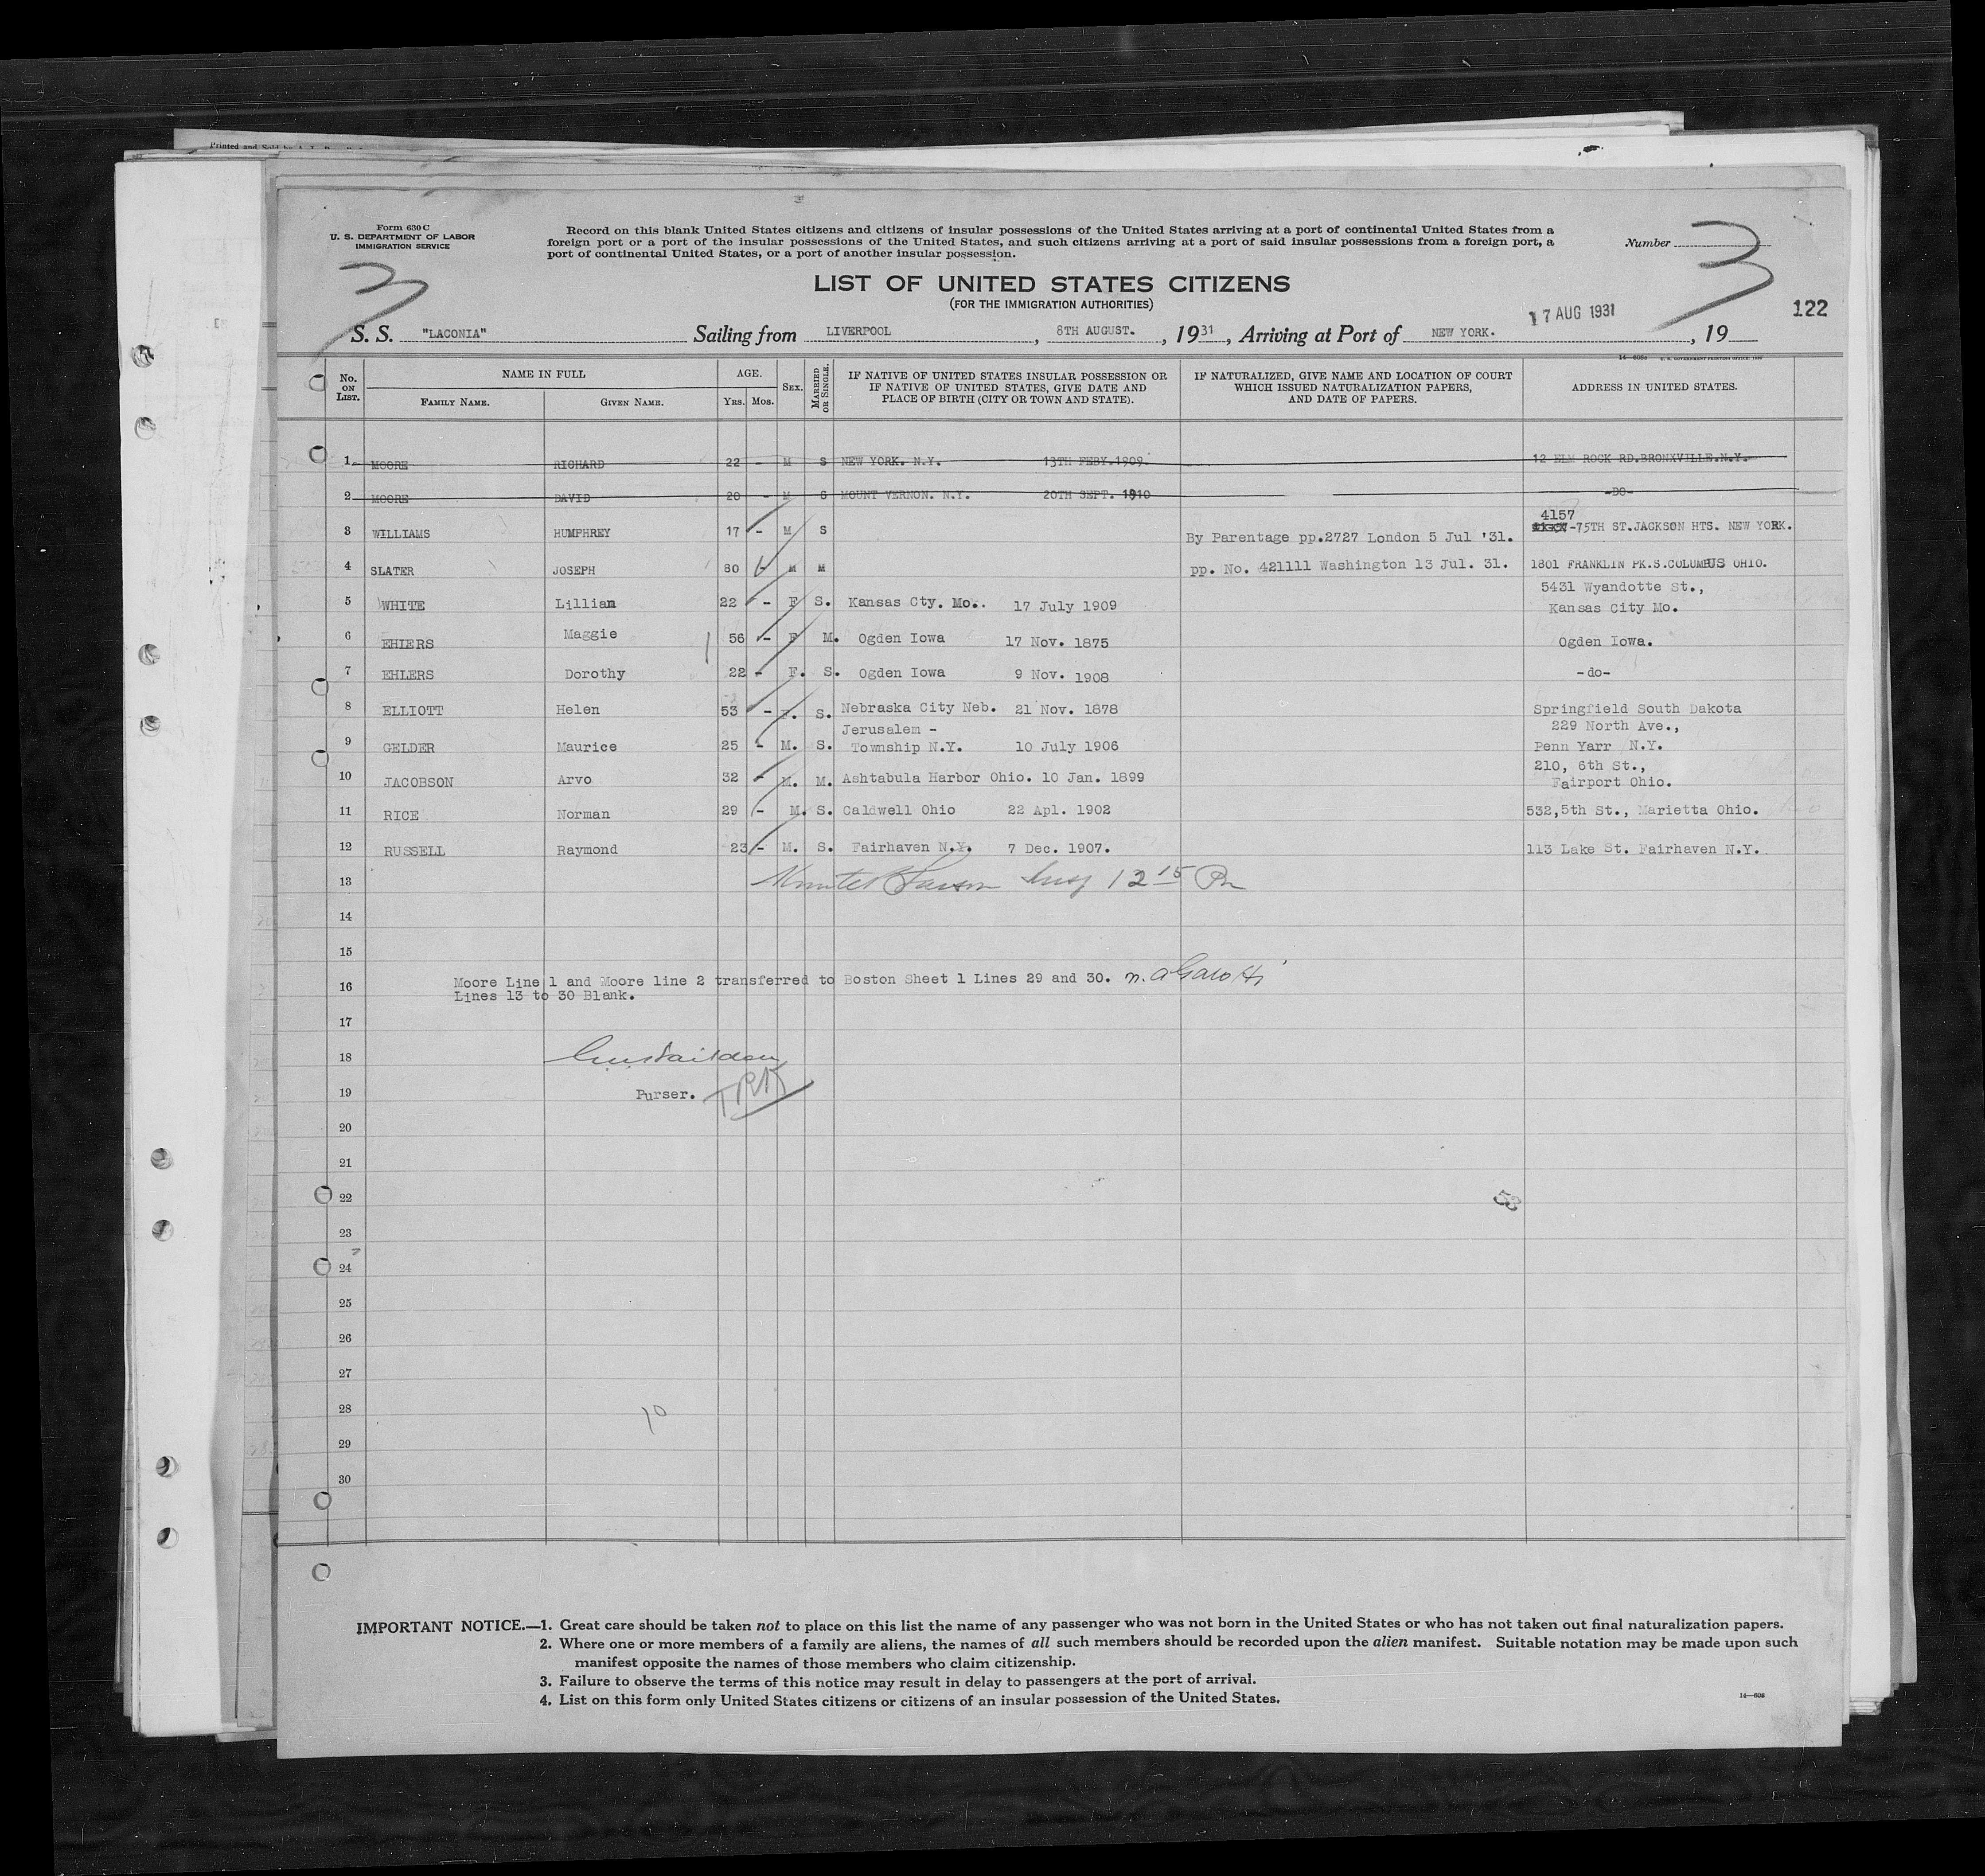 Printed and Sold by
Form 630 C
U. S. DEPARTMENT OF LABOR
IMMIGRATION SERVICE
Record on this blank United States citizens and citizens of insular possessions of the United States arriving at a port of continental United States from a
foreign port or a port of the insular possessions of the United States, and such citizens arriving at a port of said insular possessions from a foreign port, a
port of continental United States, or a port of another insular possession.
Number 3
3
LIST OF UNITED STATES CITIZENS
(FOR THE IMMIGRATION AUTHORITIES)
17 AUG 1931
122
S. S. "LACONIA" Sailing from LIVERPOOL, 8TH AUGUST., 1931, Arriving at Port of NEW YORK., 19
No. ON LIST.
NAME IN FULL
FAMILY NAME. GIVEN NAME.
AGE.
YRS. MOS.
SEX.
MARRIED OR SINGLE.
IF NATIVE OF UNITED STATES INSULAR POSSESSION OR
IF NATIVE OF UNITED STATES, GIVE DATE AND
PLACE OF BIRTH (CITY OR TOWN AND STATE).
IF NATURALIZED, GIVE NAME AND LOCATION OF COURT
WHICH ISSUED NATURALIZATION PAPERS,
AND DATE OF PAPERS.
ADDRESS IN UNITED STATES.
1 MOORE RICHARD 22 - M S NEW YORK. N.Y. 13TH FEBY.1909. 12 ELM ROCK RD.BRONXVILLE.N.Y.
2 MOORE DAVID 20 - M S MOUNT VERNON. N.Y. 20TH SEPT. 1910 -DO-
4157
3 WILLIAMS HUMPHREY 17 - M S By Parentage pp.2727 London 5 Jul '31. -75TH ST.JACKSON HTS. NEW YORK.
4 SLATER JOSEPH 80 - M M pp. No. 421111 Washington 13 Jul. 31. 1801 FRANKLIN PK.S.COLUMBUS OHIO.
5431 Wyandotte St.,
5 WHITE Lillian 22 - F S. Kansas Cty. Mo.. 17 July 1909 Kansas City Mo.
6 EHLERS Maggie 56 - F M. Ogden Iowa 17 Nov. 1875 Ogden Iowa.
7 EHLERS Dorothy 22 - F. S. Ogden Iowa 9 Nov. 1908 -do-
8 ELLIOTT Helen 53 - F. S. Nebraska City Neb. 21 Nov. 1878 Springfield South Dakota
Jerusalem - 229 North Ave.,
9 GELDER Maurice 25 - M. S. Township N.Y. 10 July 1906 Penn Yarr N.Y.
210, 6th St.,
10 JACOBSON Arvo 32 - M. M. Ashtabula Harbor Ohio. 10 Jan. 1899 Fairport Ohio.
11 RICE Norman 29 - M. S. Caldwell Ohio 22 Apl. 1902 532,5th St., Marietta Ohio.
12 RUSSELL Raymond 23 - M. S. Fairhaven N.Y. 7 Dec. 1907. 113 Lake St. Fairhaven N.Y.
13 12 15 Pm
14
15
16 Moore Line 1 and Moore line 2 transferred to Boston Sheet 1 Lines 29 and 30.
Lines 13 to 30 Blank.
17
18
19 Purser.
20
21
22
53
23
24
25
26
27
28
10
29
30
IMPORTANT NOTICE.—1. Great care should be taken not to place on this list the name of any passenger who was not born in the United States or who has not taken out final naturalization papers.
2. Where one or more members of a family are aliens, the names of all such members should be recorded upon the alien manifest. Suitable notation may be made upon such
manifest opposite the names of those members who claim citizenship.
3. Failure to observe the terms of this notice may result in delay to passengers at the port of arrival.
4. List on this form only United States citizens or citizens of an insular possession of the United States.
14—608